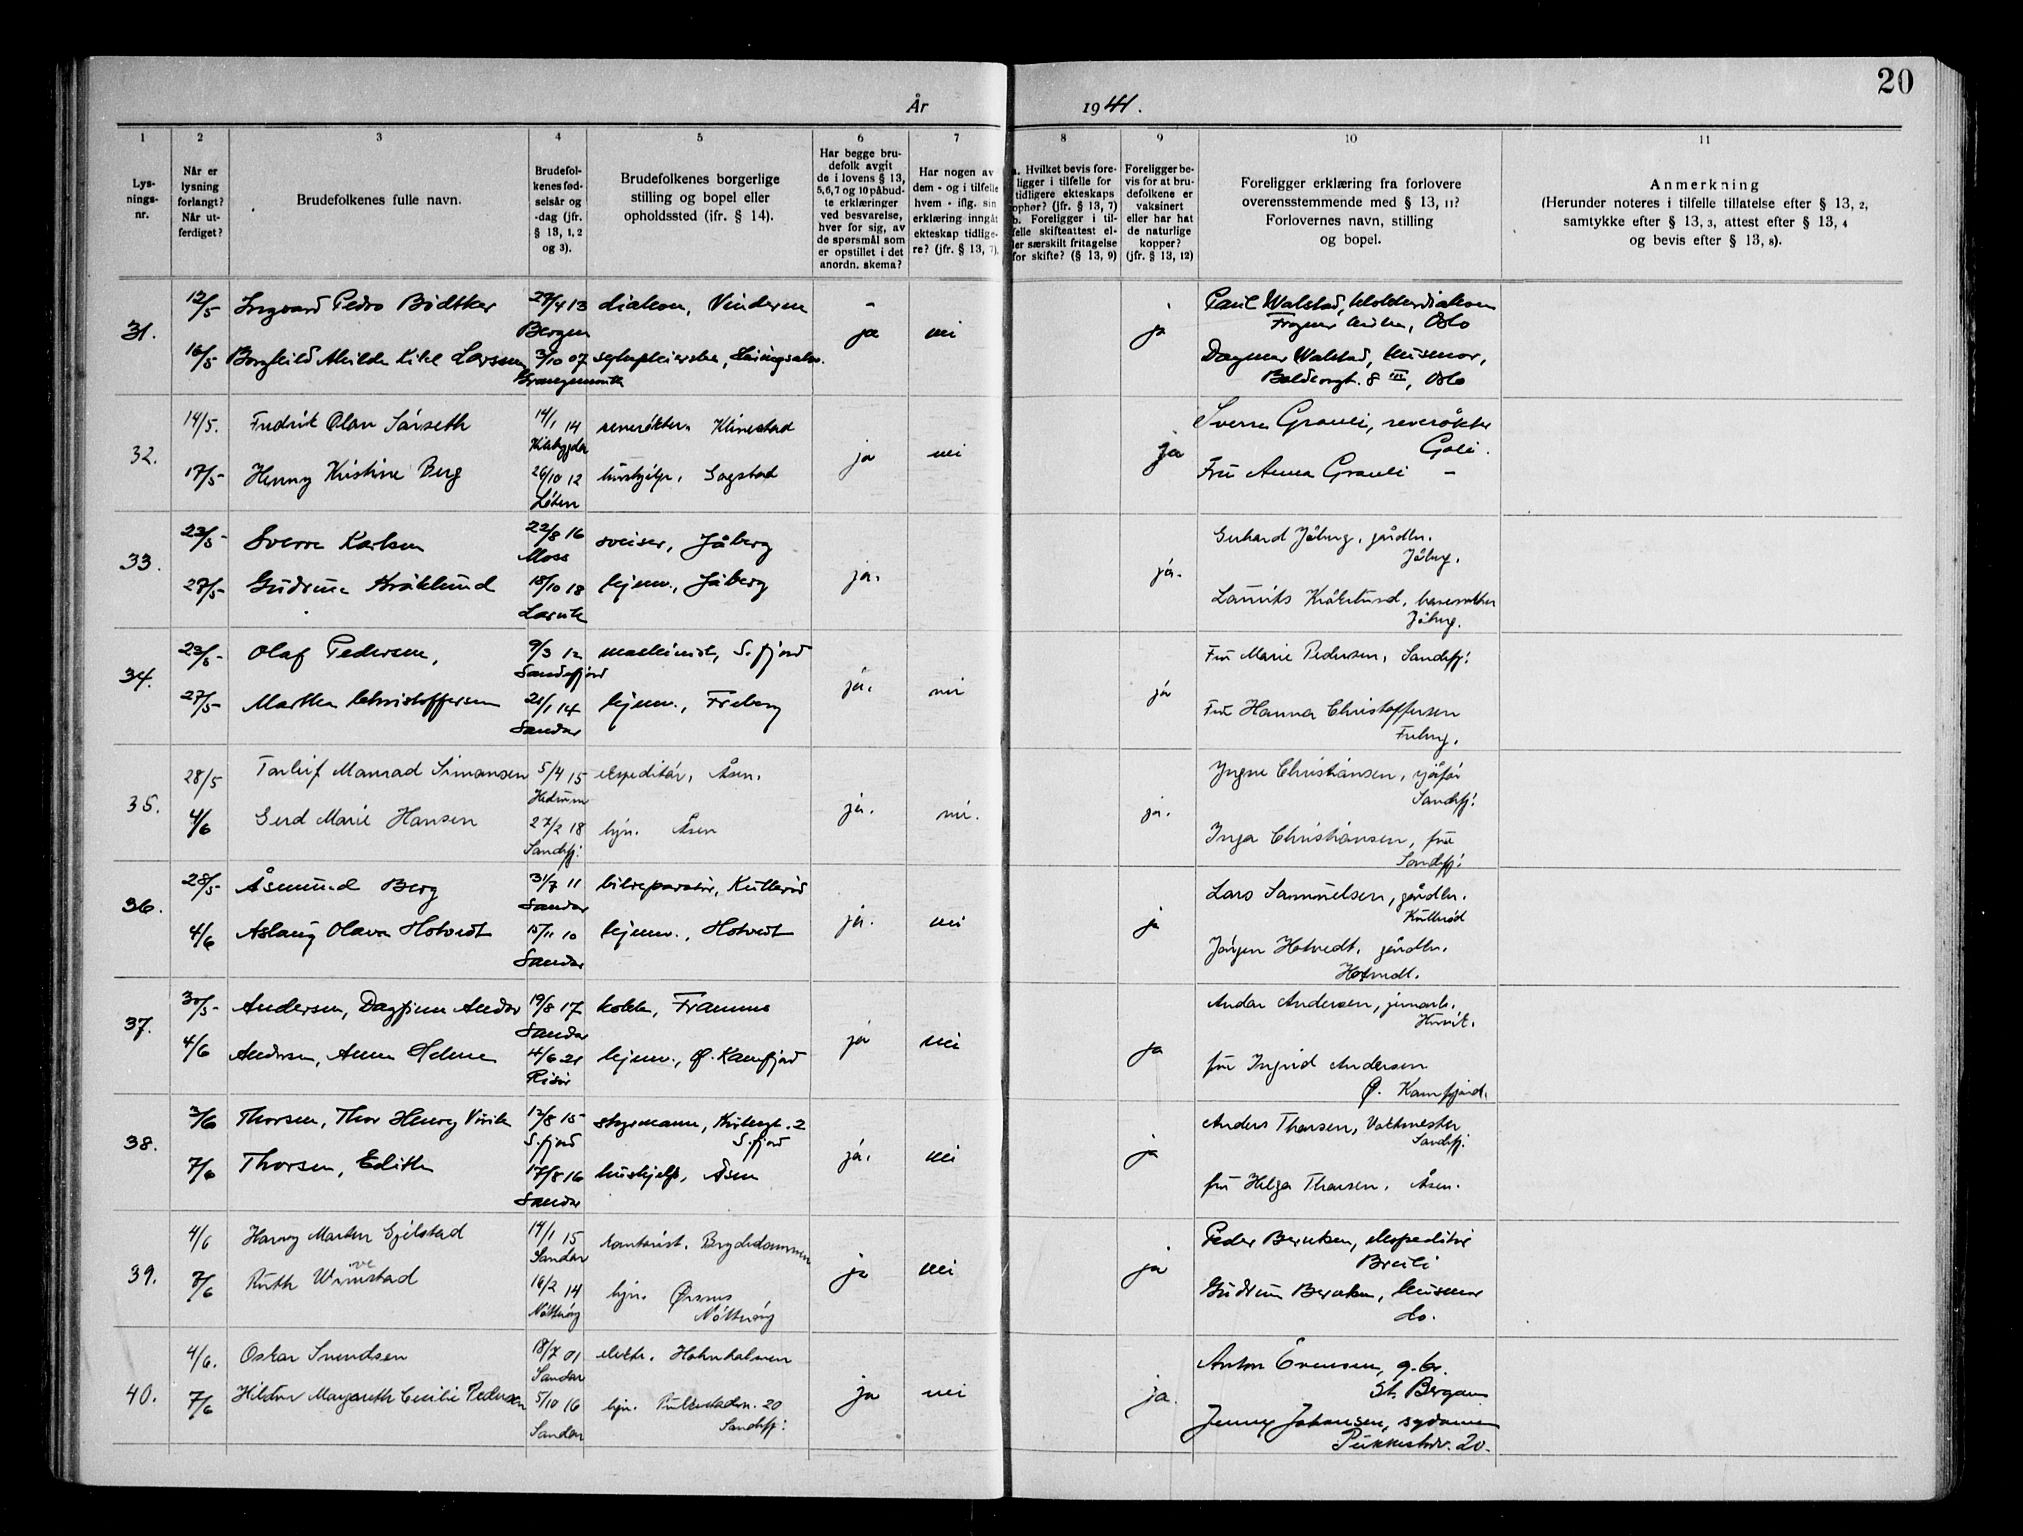 20
År 1941.
1
2
3
4
5
6
7
8
9
10
11
Lys-
nings-
nr.
Når er
lysning
forlangt?
Når ut-
ferdiget?
Brudefolkenes fulle navn.
Brudefol-
kenes fød-
selsår og
-dag (jfr.
§ 13, 1, 2
og 3).
Brudefolkenes borgerlige
stilling og bopel eller
opholdssted (ifr. § 14).
Har begge bru-
defolk avgit
de i lovens § 13,
5,6,7 og 10 påbud-
te erklæringer
ved besvarelse,
hver for sig, av
de spørsmål som
er opstillet i det
anordn. skema?
Har nogen av
dem - og i tilfelle
hvem - iflg. sin
erklæring inngått
ekteskap tidlige-
re? (jfr. § 13, 7).
a. Hvilket bevis fore-
ligger i tilfelle for
tidligere ekteskaps
ophør? (jfr. § 13, 7)
b. Foreligger i til-
felle skifteattest el-
ler særskilt fritagelse
for skifte? (§ 13, 9)
Foreligger be-
vis for at bru-
defolkene er
vaksinert
eller har hat
de naturlige
kopper?
(jfr. § 13, 12)
Foreligger erklæring fra forlovere
overensstemmende med § 13, 11?
Forlovernes navn, stilling
og bopel.
Anmerkning
(Herunder noteres i tilfelle tillatelse efter § 13, 2,
samtykke efter § 13, 3, attest efter § 13, 4
og bevis efter § 13, 8).
12/5 Ingvard Pedro Bödtker 29/4 13 diakon, Vinderen - Paul Walstad, klokkerdiakon
31. Bergen ja nei ja Frogner kirke, Oslo
16/5 Borghild Larsen 3/10 07 Dagmar Walstad, husmor,
Grangemouth 8 III, Oslo
14/5. Fredrik Olav Sörseth 14/1 14 reverökter. Klinestad Sverre Grauli, reverökter
32. Klæbygda ja nei ja Goli.
17/5- Henny Kristine Berg 26/10 12 hushjelp. Gogstad Fru Anna Grauli -
Löten
23/5- Sverre Karlsen 22/8 16 sveiser, Jåberg Gerhard Jåberg, gårdbr.
33. Moss ja. ja. Jåberg.
27/5- Gudrun Kråklund 18/10 18 hjemv., Jåberg Lauritz Kråklund,
Larvik Jåberg.
23/5- Olaf Pedersen, 9/3 12 maskinist, S.fjord Fru Marie Pedersen, Sandefj:
34. Sandefjord ja. nei ja
27/5- Martha Christoffersen 21/1 14 hjemv., Freberg Fru Hanna Christoffersen
Sandar Freberg.
28/5 Torleif Manrad Simonsen 5/4 15 ekspeditör, Åsen. Yngve Christiansen, sjåför
35. Hedrum ja. nei. ja. Sandefj:
4/6 Gerd Marie Hansen 27/2 18 hjv. Åsen Inga Christiansen, fru
Sandefj: Sandefj:
28/5- Åsmund Berg 31/7 11 bilreparatör, Kulleröd Lars Samuelsen, gårdbr.
36. Sandar ja. nei ja Kulleröd
4/6 Aslaug Olava Hotvedt 15/11 10 hjemv., Hotvedt Jörgen Hotvedt, gårdbr.
Sandar Hotvedt.
30/5- Andersen, Dagfinn Andor 19/8 17 kokk, Framnes Andor Andersen, jernarb.
37. Sandar ja nei ja
4/6 Andersen, Anna Helene 4/6 21 hjemv., Ø. Kamfjord fru Ingrid Andersen
Risör Ø. Kamfjord.
3/6 Thorsen, Thor Henry Virik 12/8 15 styrmann, 2 Anders Thorsen, Vaktmester
38. S.fjord S.fjord ja. nei ja Sandefj:
7/6 Thorsen, Edith 17/8 16 hushjelp, Åsen fru Helga Thorsen, Åsen.
Sandar
4/6 Harry Martin Gjelstad 14/1 15 kontorist. Brydedammen Peder Berntsen, ekspeditör
39. Sandar ja nei ja Breili
7/6 Ruth 16/2 14 hjv. Gudrun Berntsen, husmor
Nötteröy Nötteröy do.
4/6. Oskar Svendsen 18/7 01 elektr. Anton Evensen, g.br.
40. Sandar ja nei ja. St. Bergan
7/6 Hildur Margareth Cecilie Pedersen 5/10 16 hjv. Pukkestadv. 20 Jenny Johansen, sydame
Sandar Sandefj: Pukkestadv. 20.